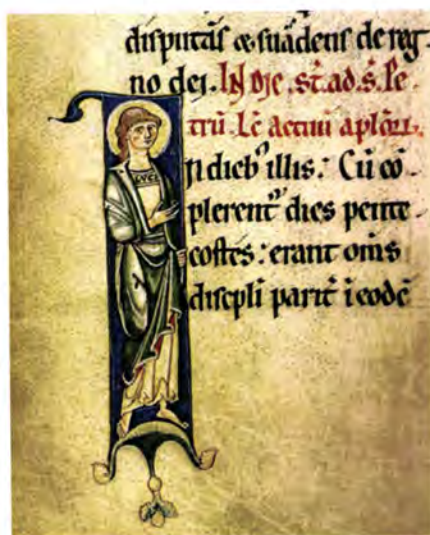 disputās & suādens de reg-
no dei. IN DIE. st̄. ad. ſ. Pe-
trū. Lc̄ actuū aplōꝝ.
N dieb᷒ illis: Cū cō-
plerent᷒ dies pente-
costes: erant om̄s
discipli parit̄ ī eodē